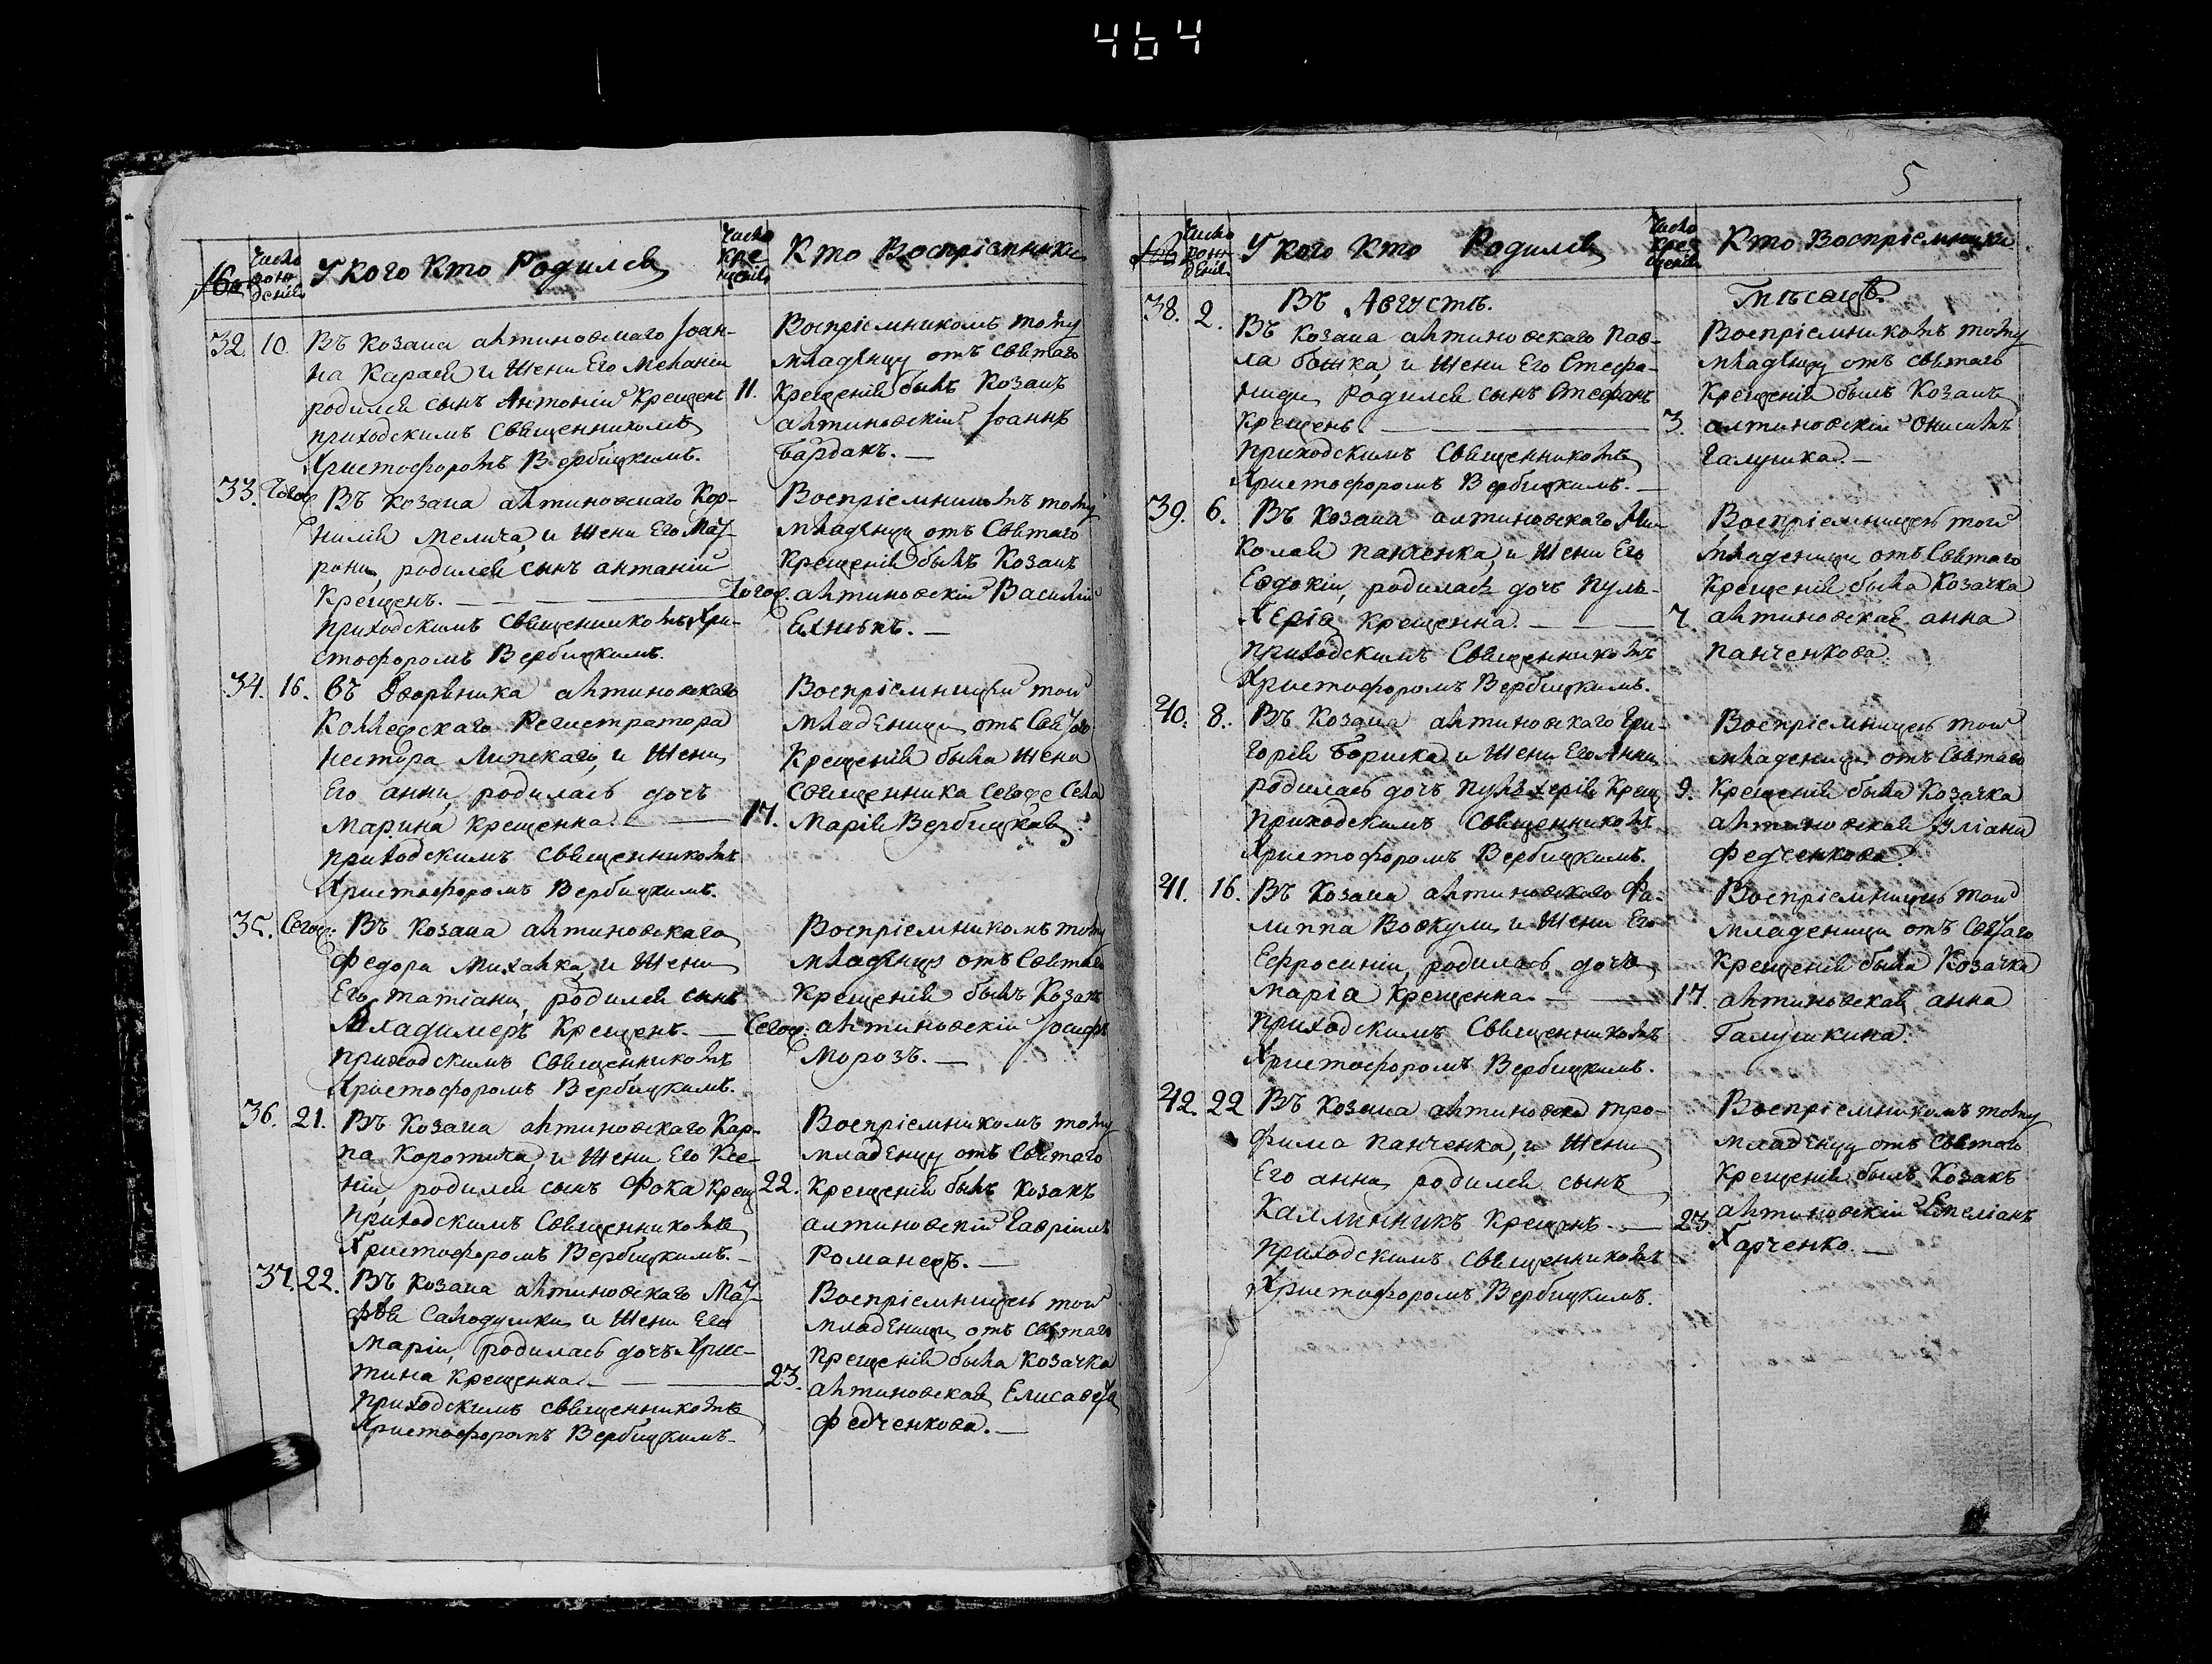 464
Число рождения
У кого кто Родился
Число крещения
Кто Воспріемники
32. 10. Въ Козака алтиновскаго Іоан-
на Карася и Жени Его Меланіи
родился сынъ Антоній Крещенъ 11.
приходскимъ Священникомъ
Христофоромъ Вербицкимъ.
Воспріемникомъ тому
младенцу отъ святаго
Крещенія былъ Козакъ
алтиновскій Іоаннъ
Бардакъ.
33. Тогож. Въ Козака алтиновскаго Кор-
нилія Мелича, и Жени Его Мат-
рони, родился сынъ антаній
Крещенъ. Тогож.
приходскимъ священникомъ Хри-
стофоромъ Вербицкимъ.
Воспріемникомъ тому
младенцу отъ Святаго
Крещенія былъ Козакъ
алтиновскій Василій
34. 16. Въ Дворяника алтиновскаго
Коллежскаго Регистратора
Нестора Липскаго, и Жени
Его анни, родилась дочъ
Марина крещенна. 17.
приходскимъ священникомъ
Христофоромъ Вербицкимъ.
Воспріемницей той
младеници отъ Святаго
Крещенія была Жена
священника Сегоже Села
Марія Вербицкая.
35. Сегож. Въ Козака алтиновскаго
Федора Михалка, и Жени
Его татіани, родился сынъ
Владимеръ Крещенъ. Сегож.
приходскимъ Священникомъ
Христофоромъ Вербицкимъ.
Воспріемникомъ тому
младенцу отъ Святаго
Крещенія былъ Козакъ
алтиновскій Іосифъ
Морозъ.
36. 21. Въ Козака алтиновскаго Кар-
па Коротича, и Жени Его Ксе-
ніи, родился сынъ Фока Крещ 22.
приходскимъ Священникомъ
Христофоромъ Вербицкимъ.
Воспріемникомъ тому
младенцу отъ Святаго
Крещенія былъ Козакъ
алтиновскій Гавріилъ
Романецъ.
37. 22. Въ Козака алтиновскаго Мат-
фѣя Салодушки и Жени Его
Маріи, родилась дочъ Хрис-
тина Крещенна 23.
приходскимъ священникомъ
Христофоромъ Вербицкимъ
Воспріемницей той
младеници отъ святаго
Крещенія была Козачка
алтиновская Елисавета
Федченкова.
5
Число рождения
У кого Кто Родился
Число крещения
Кто Воспріемники
Въ Августѣ. Мѣсяцѣ.
38. 2. Въ Козака алтиновскаго Пав-
ла Божка, и Жени Его Стефа-
ниди Родился сынъ Стефанъ
Крещенъ 3.
приходскимъ Священникомъ
Христофоромъ Вербицкимъ.
Воспріемникомъ тому
младенцу отъ святаго
Крещенія былъ Козакъ
алтиновскій Онисимъ
Галушка.
39. 6. Въ Козака алтиновскаго Ни-
колая панченка, и Жени Его
Евдокіи, родилась дочъ Пуль-
херія Крещенна. 7.
приходскимъ Священникомъ
Христофоромъ Вербицкимъ.
Воспріемницей той
младеници отъ Святаго
Крещенія была Козачка
алтиновская анна
панченкова
40. 8. Въ Козака алтиновскаго Гри-
горія Бориска и Жени Его Анни
родилась дочъ Пульхерія Крещ 9.
приходскимъ Священникомъ
Христофоромъ Вербицкимъ.
Воспріемницей той
младеници отъ Святаго
Крещенія была Козачка
алтиновская Уліана
федченкова
41. 16. Въ Козака алтиновскаго Фи-
липпа Вовкули, и Жени Его
Ефросиніи, родилась дочъ
Марія Крещенна. 17
приходскимъ Священникомъ
Христофоромъ Вербицкимъ.
Воспріемницей той
младеници отъ Святаго
Крещенія была Козачка
алтиновская анна
Галушкина.
42. 22 Въ Козака алтиновска тро-
фима панченка, и Жени
Его анни родился сынъ
Каллинникъ Крещенъ. 23
приходскимъ священникомъ
Христофоромъ Вербицкимъ.
Воспріемникомъ тому
младенцу отъ святаго
Крещенія былъ Козакъ
алтиновскій Емеліанъ
Харченко.